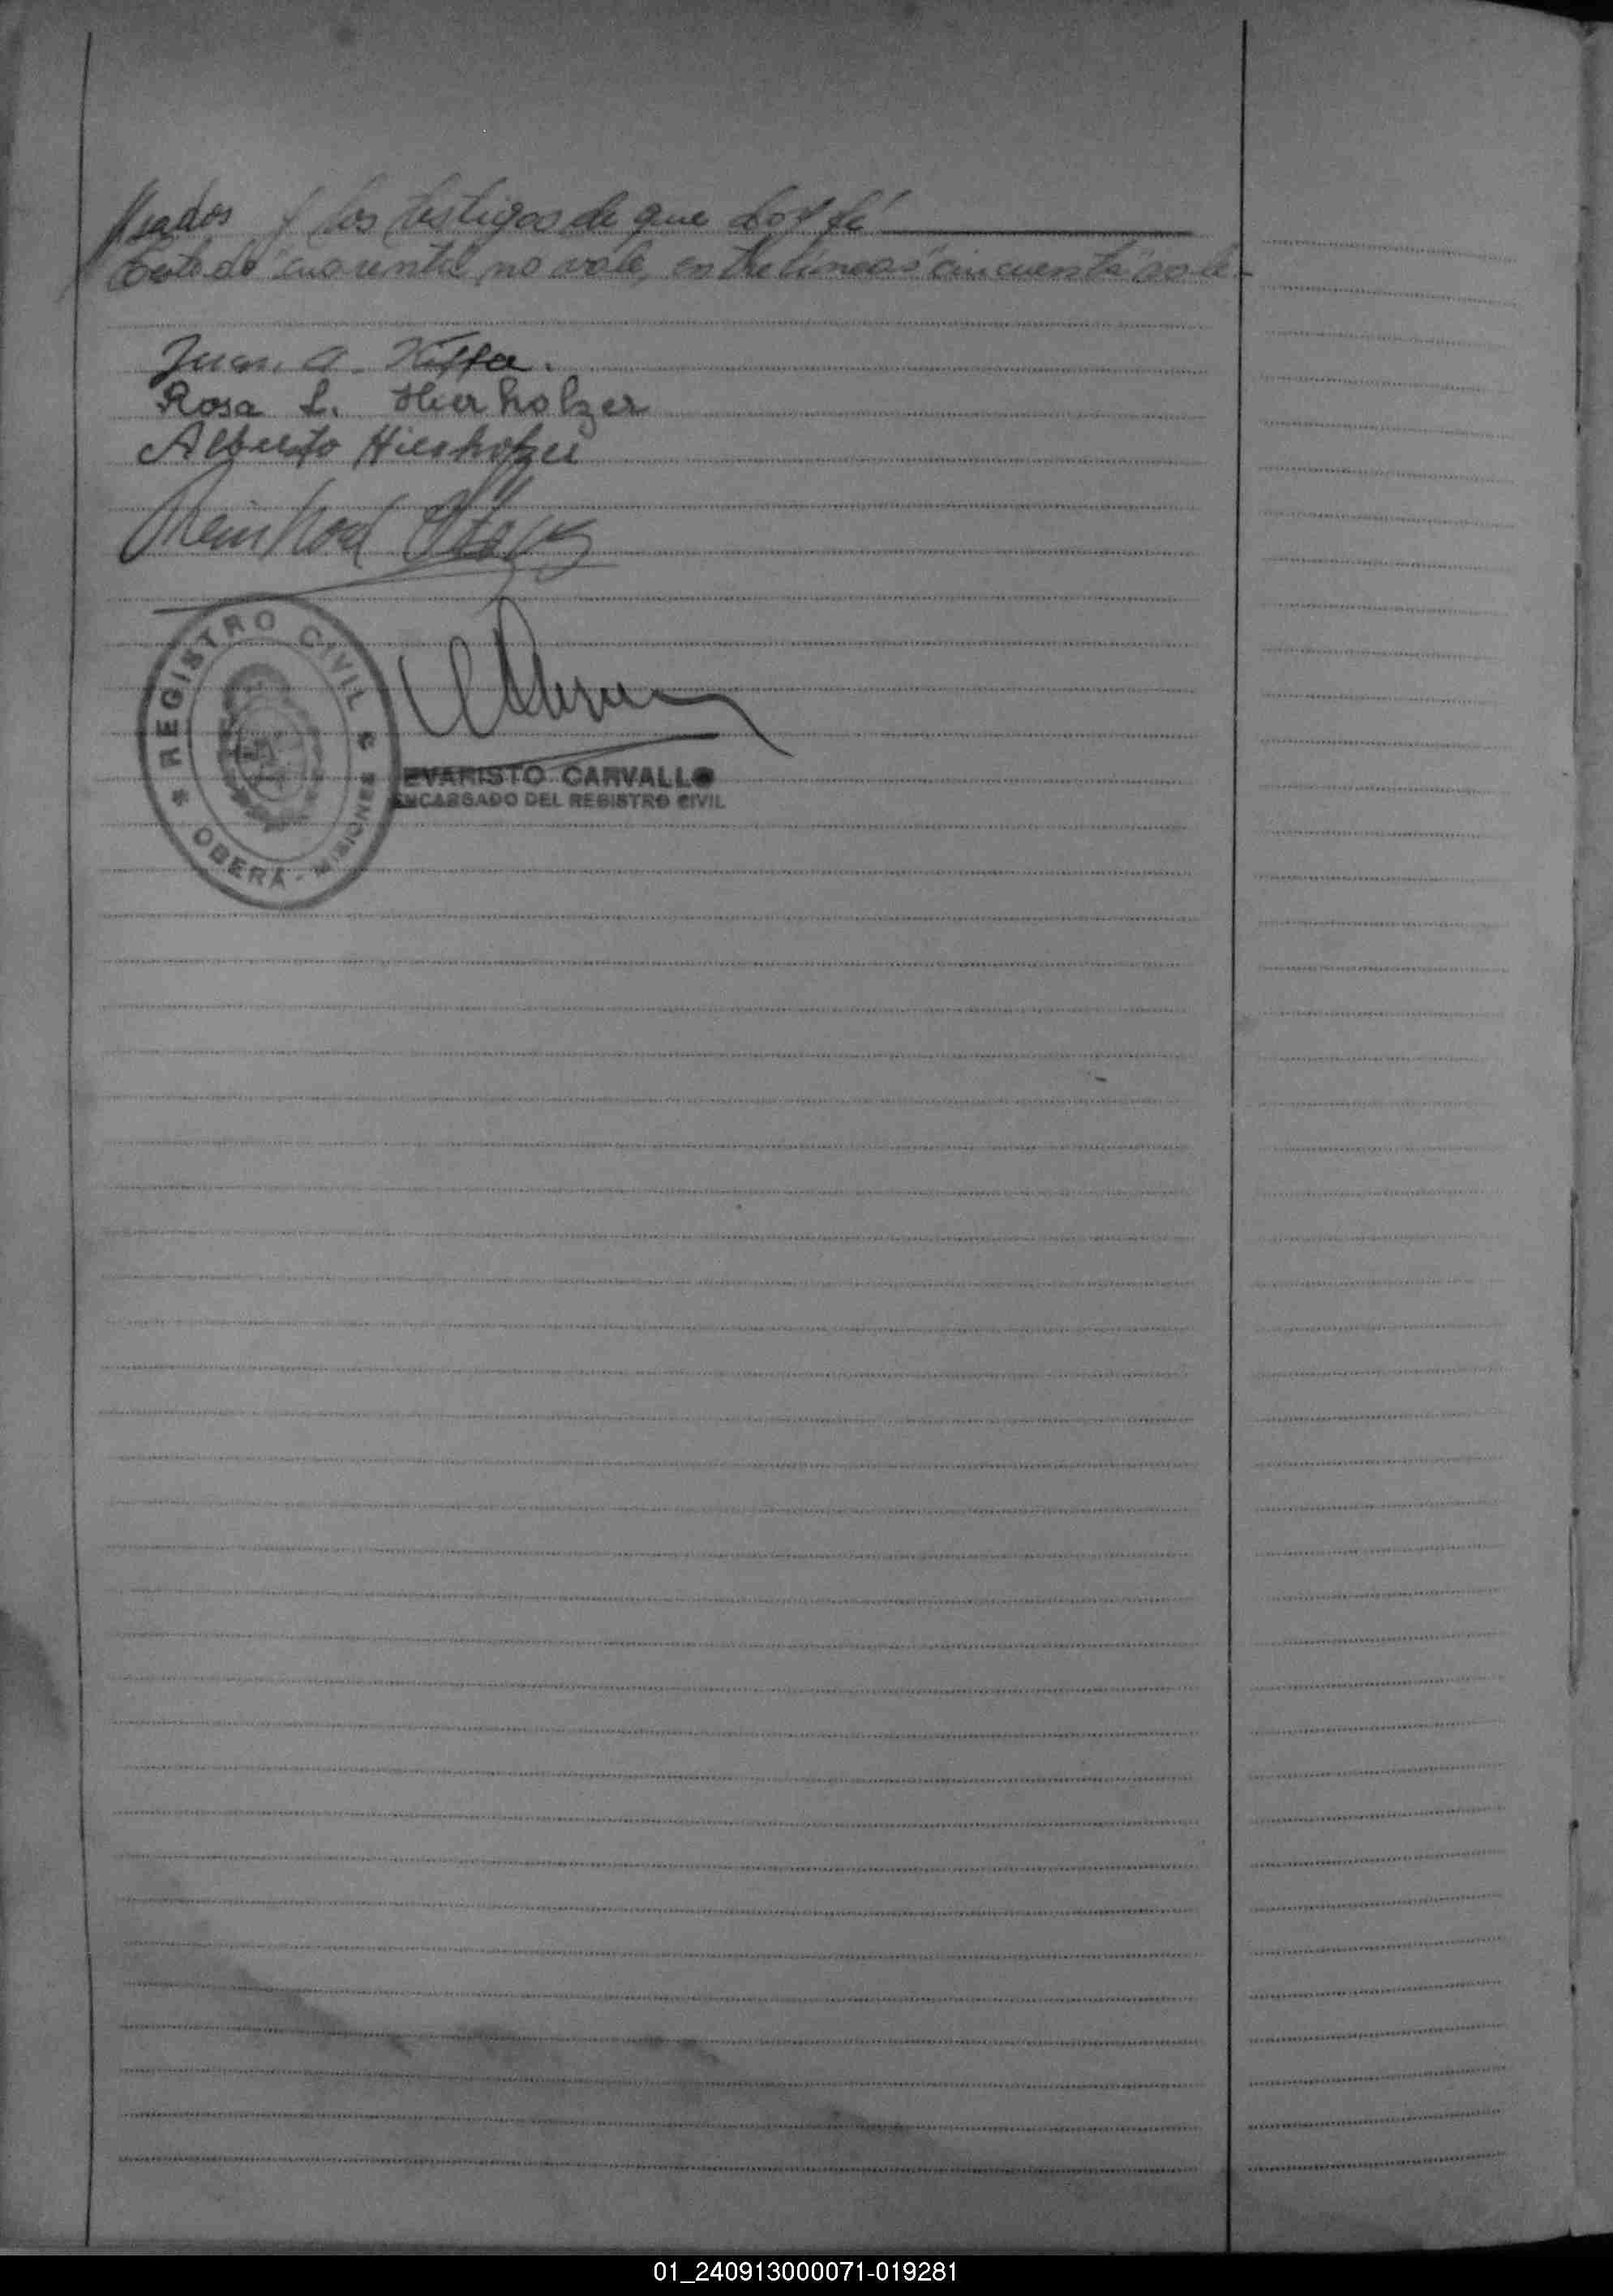 //sados y los testigos de que doy fé
Testado "cuarenta" no vale, entre lineas "cincuenta" vale-
Juan A.
Rosa L. Hierholzer
Alberto Hierholzer
Reinhard
REGISTRO CIVIL
OBERÁ - MISIONES
EVARISTO CARVALLO
ENCARGADO DEL REGISTRO CIVIL
01_240913000071-019281